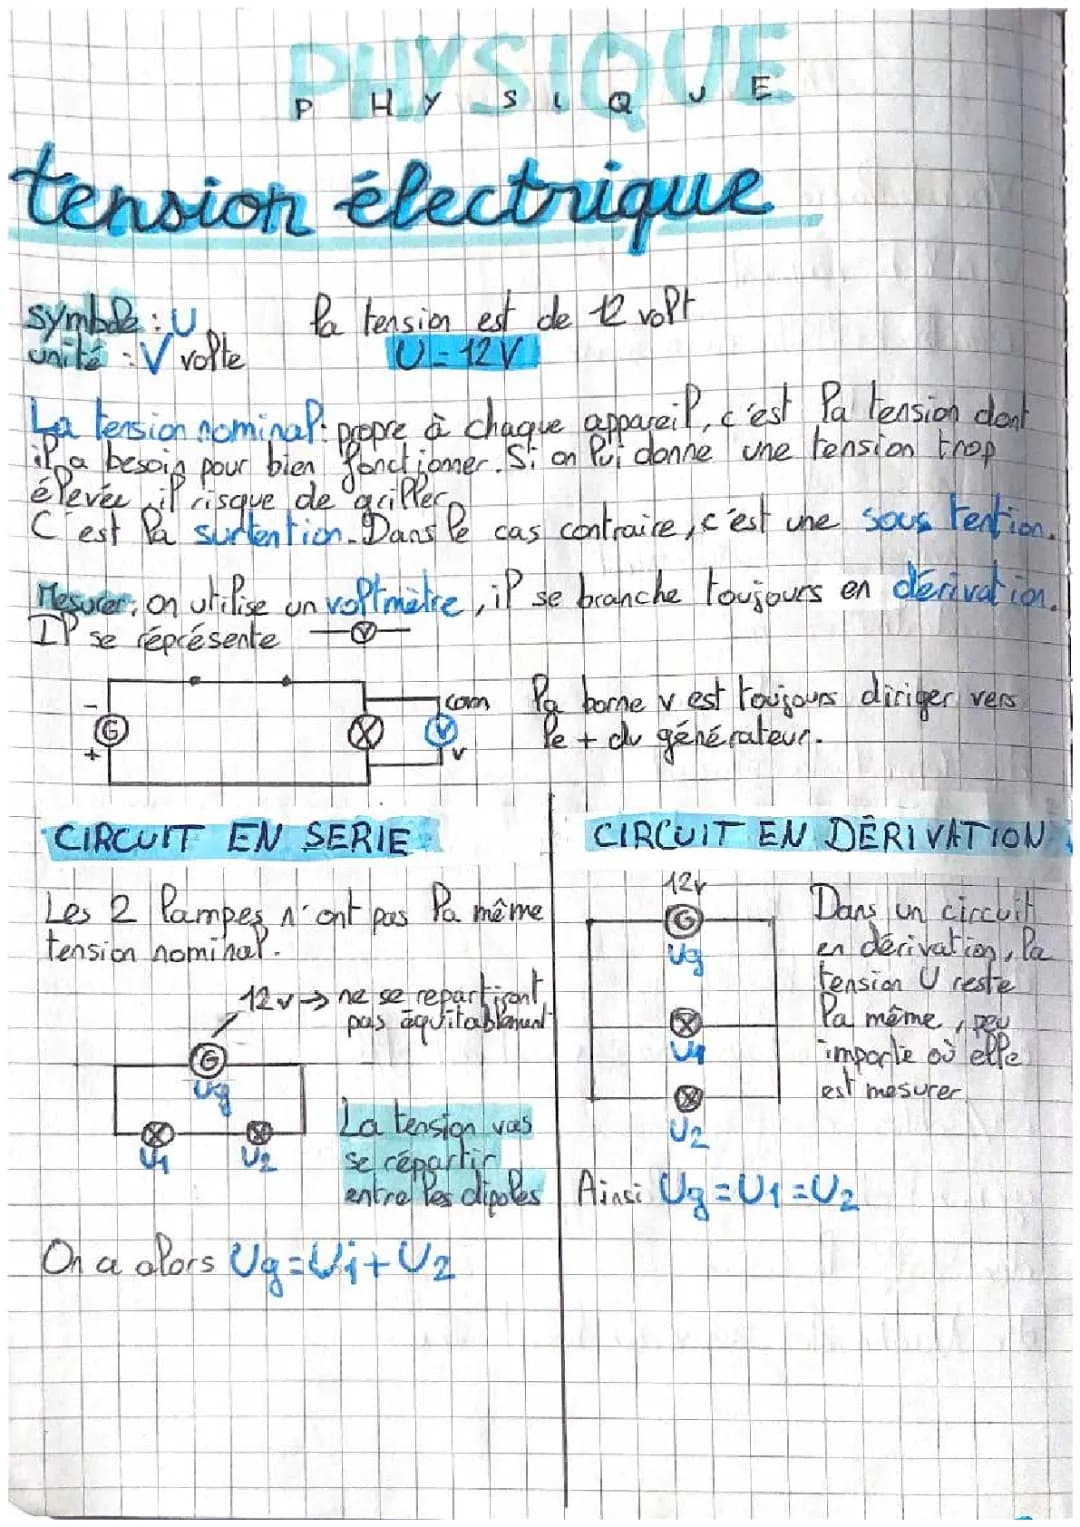 PHYSIQUE
P H Y S I Q U E
tension électrique
symbole : U
unité : V volte
la tension est de 12 volt
U = 12 V
La tension nominal : propre à chaque appareil, c'est la tension dont
il a besoin pour bien fonctionner. Si on lui donne une tension trop
élevée il risque de griller.
C'est la surtention. Dans le cas contraire, c'est une sous tention.
Mesurer : on utilise un voltmètre, il se branche toujours en dérivation.
Il se réprésente V
- G +
com
V
v
la borne v est toujours diriger vers
le + du générateur.
CIRCUIT EN SERIE
Les 2 lampes n'ont pas la même
tension nominal.
12v → ne se repartiront
pas équitablement
G
Ug
U1 U2
La tension vas
se répartir
entre les dipoles
On a alors Ug = U1 + U2
CIRCUIT EN DÉRIVATION
12v
G
Ug
U1
U2
Dans un circuit
en dérivation, la
tension U reste
la même, peu
importe où elle
est mesurer
Ainsi Ug = U1 = U2